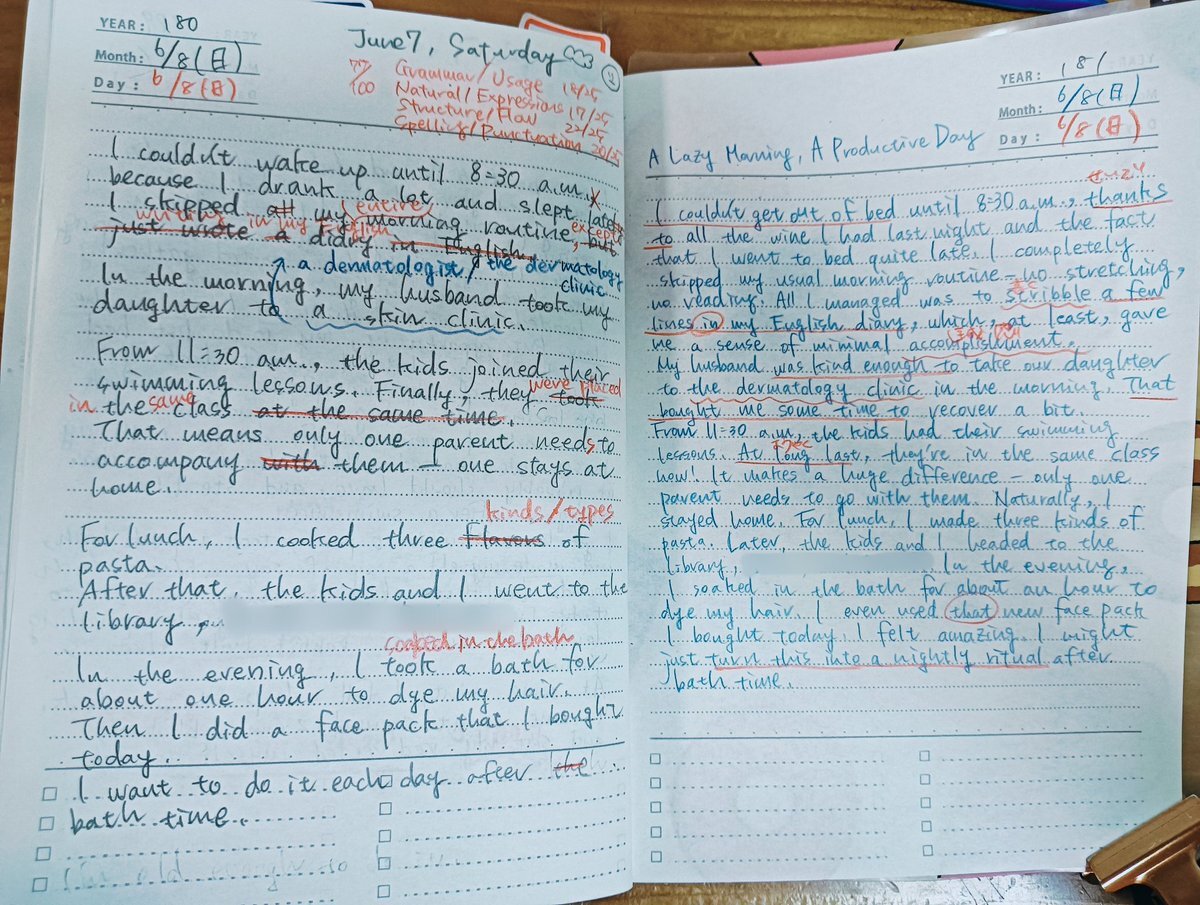 YEAR: 180
Month: 6/8(日)
Day: 6/8(日)
June 7, Saturday
77/100
Grammar/Usage 18/25
Natural/Expressions 17/25
Structure/Flow 22/25
Spelling/Punctuation 20/25
I couldn't wake up until 8:30 a.m.
because I drank a lot and slept late.
I skipped all my entire morning routine, except but
writing in my English
just wrote a diary in English.
a dermatologist / the dermatology clinic
In the morning, my husband took my
daughter to a skin clinic.
From 11:30 a.m., the kids joined their
swimming lessons. Finally, they were placed took
in the same class at the same time.
That means only one parent needs to
accompany with them – one stays at
home.
kinds/types
For lunch, I cooked three flavors of
pasta.
After that, the kids and I went to the
library,
soaked in the bath
In the evening, I took a bath for
about one hour to dye my hair.
Then I did a face pack that I bought
today.
I want to do it each day after the
bath time.
YEAR: 181
Month: 6/8(日)
Day: 6/8(日)
A Lazy Morning, A Productive Day
I couldn't get out of bed until 8:30 a.m., thanks
to all the wine I had last night and the fact
that I went to bed quite late. I completely
skipped my usual morning routine – no stretching,
no reading. All I managed was to scribble a few
lines in my English diary, which, at least, gave
me a sense of minimal accomplishment.
My husband was kind enough to take our daughter
to the dermatology clinic in the morning. That
bought me some time to recover a bit.
From 11:30 a.m, the kids had their swimming
lessons. At long last, they're in the same class
now! It makes a huge difference – only one
parent needs to go with them. Naturally, I
stayed home. For lunch, I made three kinds of
pasta. Later, the kids and I headed to the
library, In the evening,
I soaked in the bath for about an hour to
dye my hair. I even used that new face pack
I bought today. I felt amazing. I might
just turn this into a nightly ritual after
bath time.